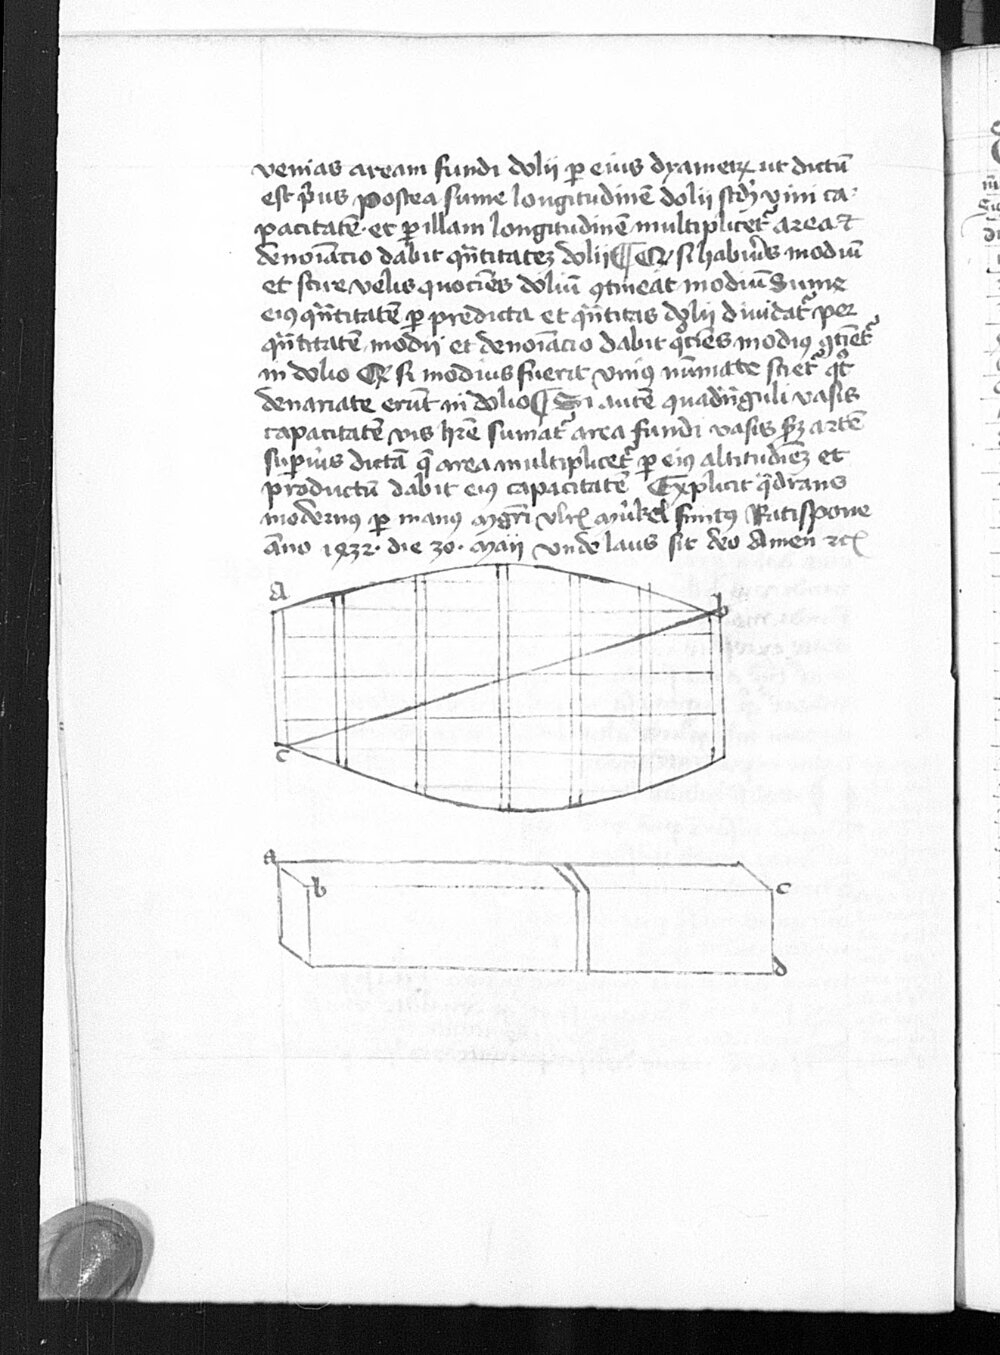 venias aream fundi dolii ꝑ eius dyametꝝ ut dictū
est pͥus Postea sume longitudinē dolii scd̄ꝫ vini ca
pacitatē et ꝑ illam longitudinē multiplicetᷣ area et
denoīacio dabit qn̄titatez dolii ¶ Qꝫ si habuͥis modiū
et scire velis quociēs doliū ꝯtineat modiū Sume
eiꝰ qn̄titatē ꝑ predicta et qn̄titas dolii diuidatᷣ per
qn̄titatē modii et denoīacio dabit qͦciēs modiꝰ ꝯtīetᷣ
in dolio Qꝫ si modius fuerit viniꝰ nūmate scietᷣ qͦt
denariate erūt in dolio ¶ Si autē quadrⁿguli vasis
capacitatē vis hr̄e sumatᷣ area fundi vasis scd̄ꝫ artē
supͥus dictā q̄ area multiplicetᷣ ꝑ eiꝰ altitudīeꝫ et
productū dabit eiꝰ capacitatē Explicit qᷓdrans
modernꝰ ꝑ manꝰ mgr̄i vlrͥ mūkel finitꝰ Ratispone
āno 1432 die 30 Maii vnde laus sit deo Amen ⁊cꝭ
A
b
c
a
b
c
d